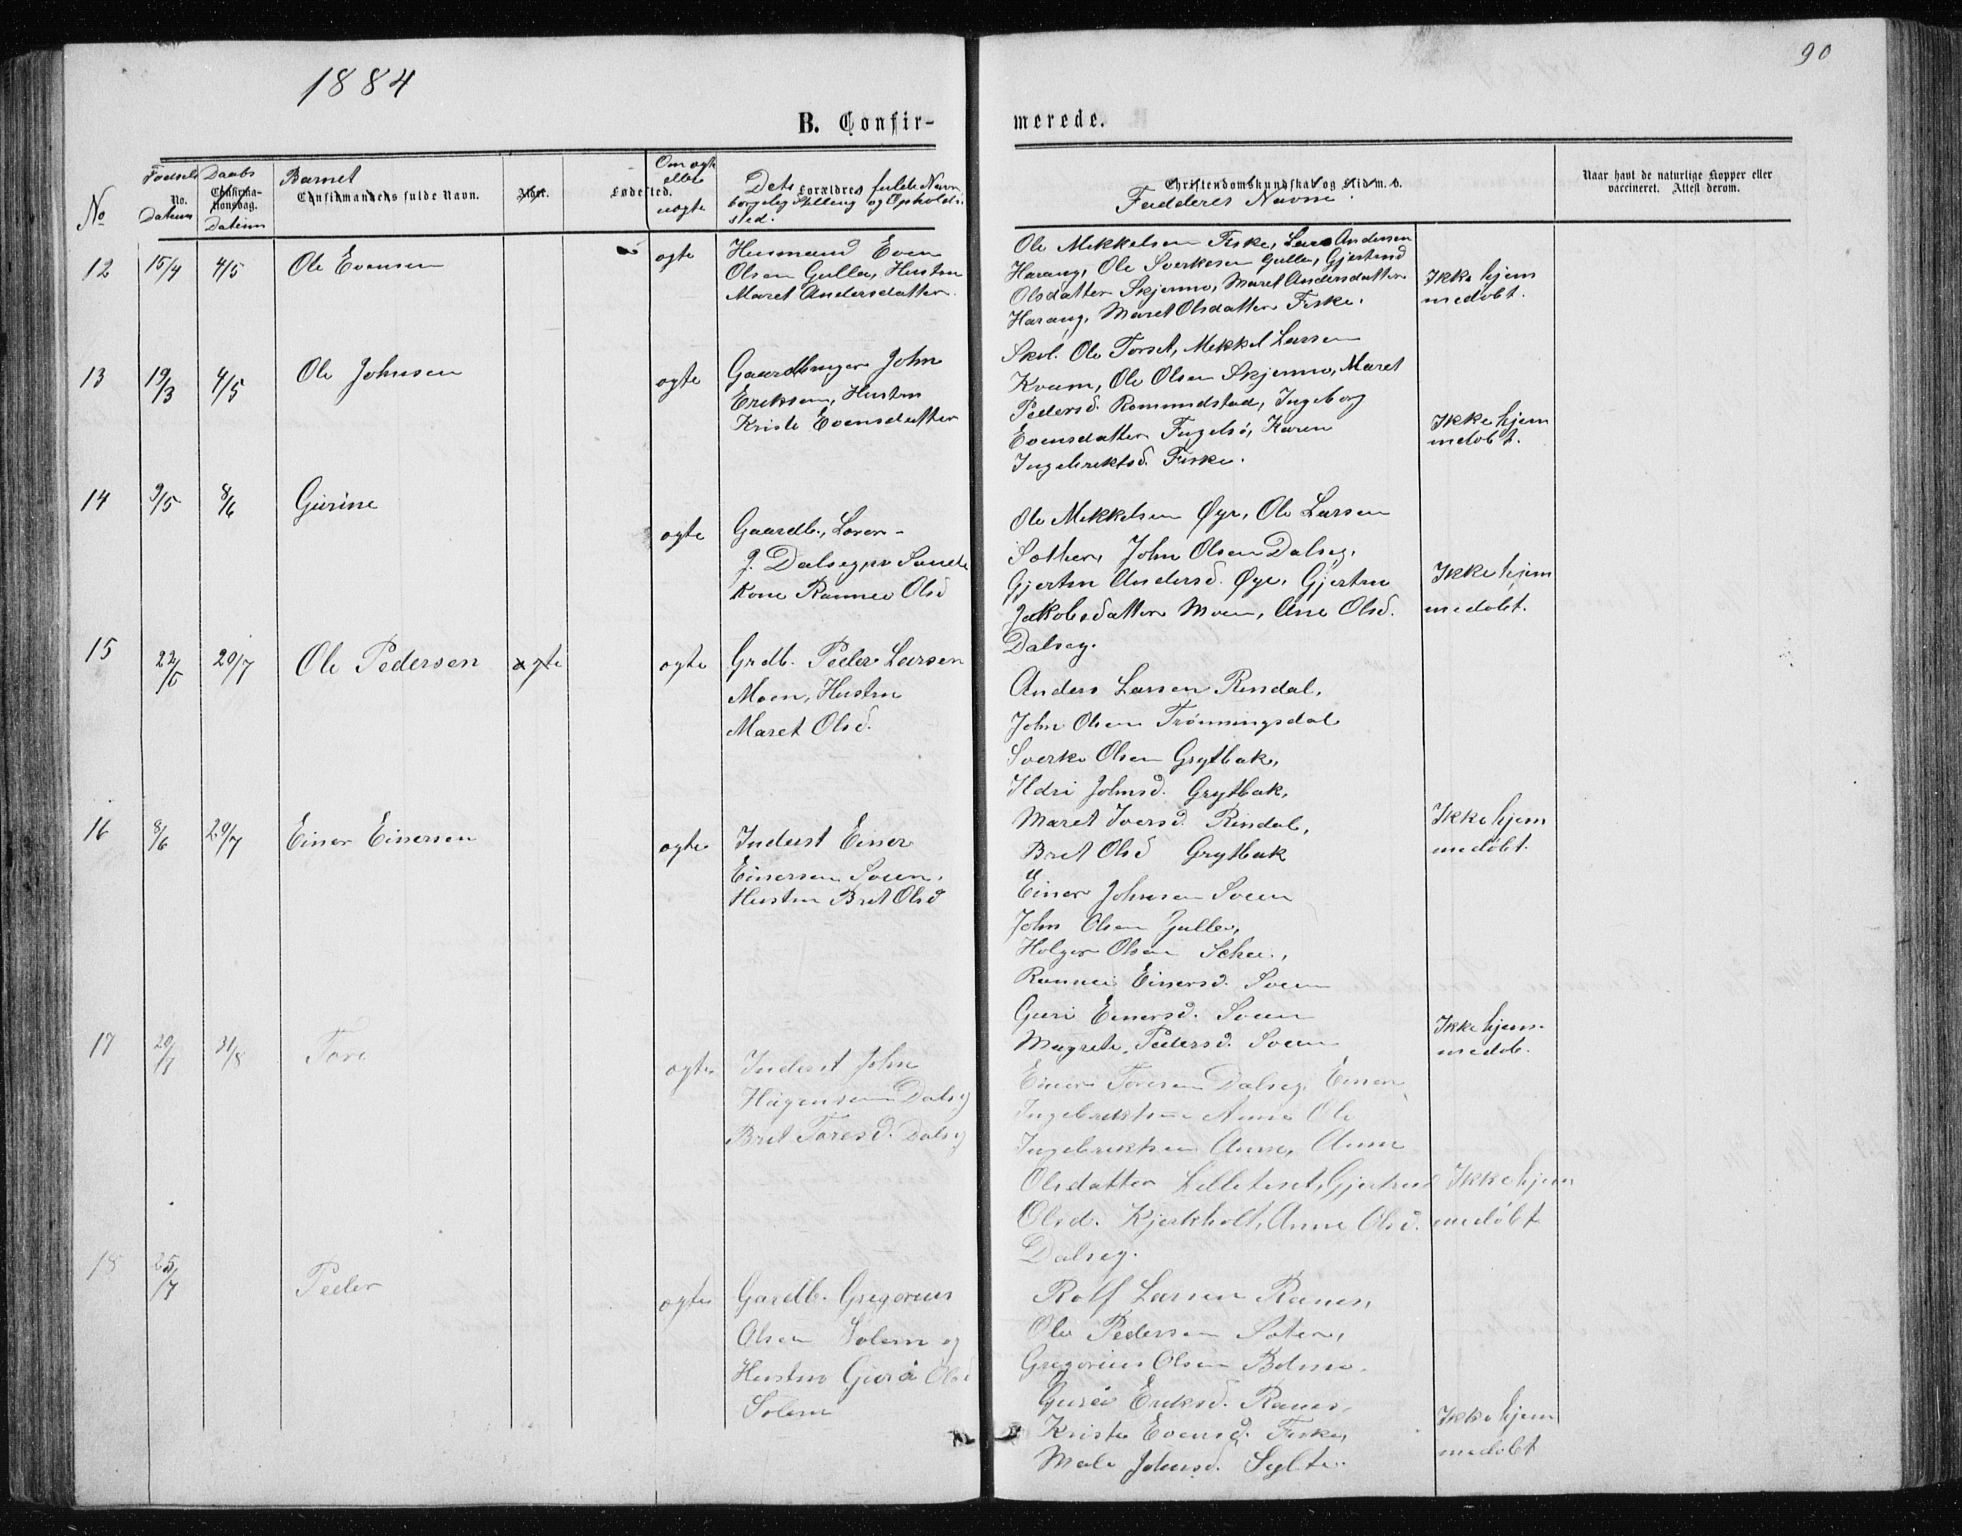 1884
90
B. Confir-
merede.
No
Fødsels No. Datum
Daabs Confirma-tionsdag. Datum
Barnet
Confirmandens fulde Navn.
Alder.
Fødested.
Om ægte
eller
uægte
Dets Forældres fulde Navn,
borgerlig Stilling og Opholds-
sted.
Christendomskundskab og Flid m. v.
Fadderes Navne.
Naar havt de naturlige Kopper eller
vaccineret. Attest derom.
12 15/4 4/5 Ole Evensen ægte
Husmand Even
Olsen Gulla, Hustru
Maret Andersdatter.
Ole Mikkelsen Fiske, Lars Andersen
Harang, Ole Sverkesen Gulla, Gjertrud
Olsdatter Skjermo, Maret Andersdatter
Harang, Maret Olsdatter Fiske.
Ikke hjem
medøbt.
13 19/3 4/5 Ole Johnsen ægte
Gaardbruger John
Eriksen, Hustru
Kristi Evensdatter
Skol. Ole Torset, Mikkel Larsen
Kvam, Ole Olsen Skjermo, Maret
Pedersd. Romundstad, Ingeborg
Evensdatter Fugelsø, Karen
Ingebrektsd. Fiske.
Ikke hjem
medøbt.
14 9/5 8/6 Gurine ægte
Gaardb., Loren-
J. Dalseg,
Kone Rannei Olsd
Ole Mikkelsen Øye, Ole Larsen
Sæther, John Olsen Dalseg,
Gjertru Andersd. Øye, Gjertru
Jakobsdatter Moen, Ane Olsd.
Dalseg.
Ikke hjem
medøbt.
15 22/5 20/7 Ole Pedersen ægte ægte
Grdb. Peder Larsen
Moen, Hustru
Maret Olsd.
Anders Larsen Rindal,
John Olsen Trønningsdal
Sverke Olsen Grytbak,
Ildri Johnsd. Grytbak,
Maret Iversd. Rindal,
Bret Olsd Grytbak
Ikke hjem
medøbt.
16 8/6 20/7 Einer Einersen ægte
Inderst Einer
Einersen Svean,
Hustru Bret Olsd
Einer Johnsen Svean
John Olsen Gulla,
Holger Olsen
Rannei Einersd. Svean
Guri Einersd. Svean
Magrete Pedersd. Svean
Ikke hjem-
medøb.
17 20/7 31/8 Tore ægte
Inderst John
Hagensen Dalseg
Bret Toresd. Dalseg
Einer Toresen Dalseg, Einer
Ingebrektsen Aune, Ole
Ingebrektsen Aune, Anne
Olsdatter Litleteset, Gjertrud
Olsd. Kjerkholt, Anne Olsd.
Dalseg.
Ikke hjem
medøbt
18 25/7 Peder ægte
Gardb. Gregorius
Olsen Solem og
Hustru Gurå Olsd
Solem
Rolf Larsen Ranes,
Ole Pedersen Sæter,
Gregorius Olsen Bolme.
Guroi Eriksd. Ranes,
Kristi Evensd. Fiske,
Male Johnsd. Sylte.
Ikke hjem
medøbt